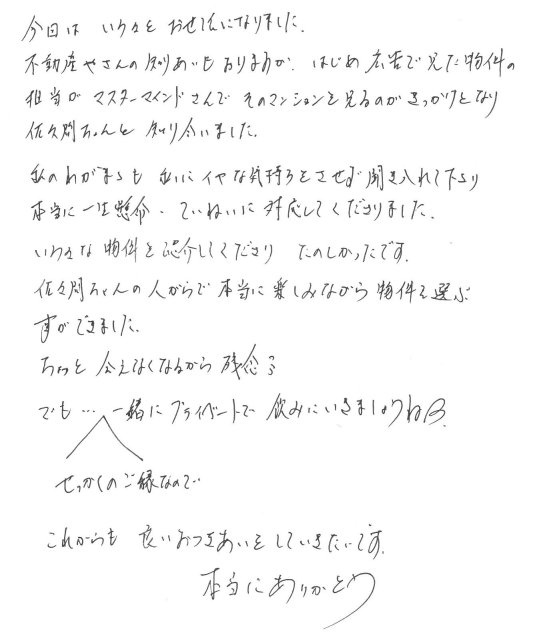 今日は いろいろと お世話になりました.
不動産やさんの知りあいもおりますが. はじめ 広告で見た物件の
担当が マスターマインドさんで そのマンションを見るのがきっかけとなり
佐々間ちゃんと 知り合いました.
私のわがままも 私にイヤな気持ちをさせず聞き入れて下さり
本当に一生懸命・ていねいに 対応してくださりました.
いろいろな物件を紹介してくださり たのしかったです.
佐々間ちゃんの人がらで 本当に楽しみながら 物件を選ぶ
事ができました.
ちょっと 会えなくなるから 残念
でも… 一緒に プライベートで 飲みにいきましょうね
せっかくのご縁なので
これからも 良いおつきあいをしていきたいです.
本当にありがとう